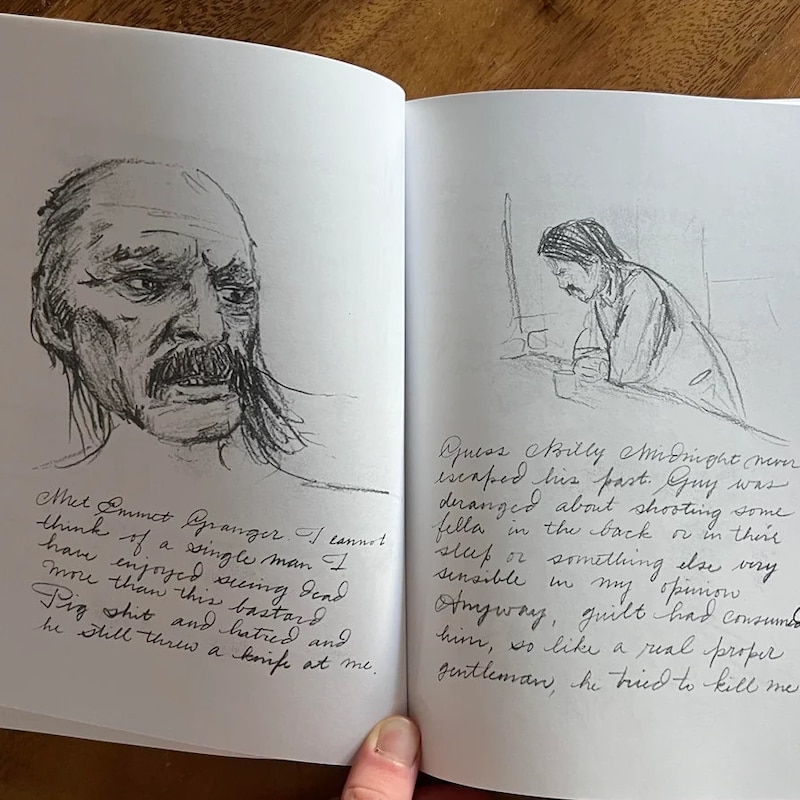 Met Emmet Granger. I cannot
think of a single man I
have enjoyed seeing dead
more than this bastard
Pig shit and hatred and
he still threw a knife at me.
Guess Billy Midnight never
escaped his past. Guy was
deranged about shooting some
fella in the back or in their
sleep or something else very
sensible in my opinion
Anyway, guilt had consumed
him, so like a real proper
gentleman, he tried to kill me